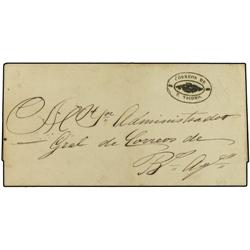 CORREOS DE
Al Sor Administrador
Gral de Correos de
Bs. Ays.